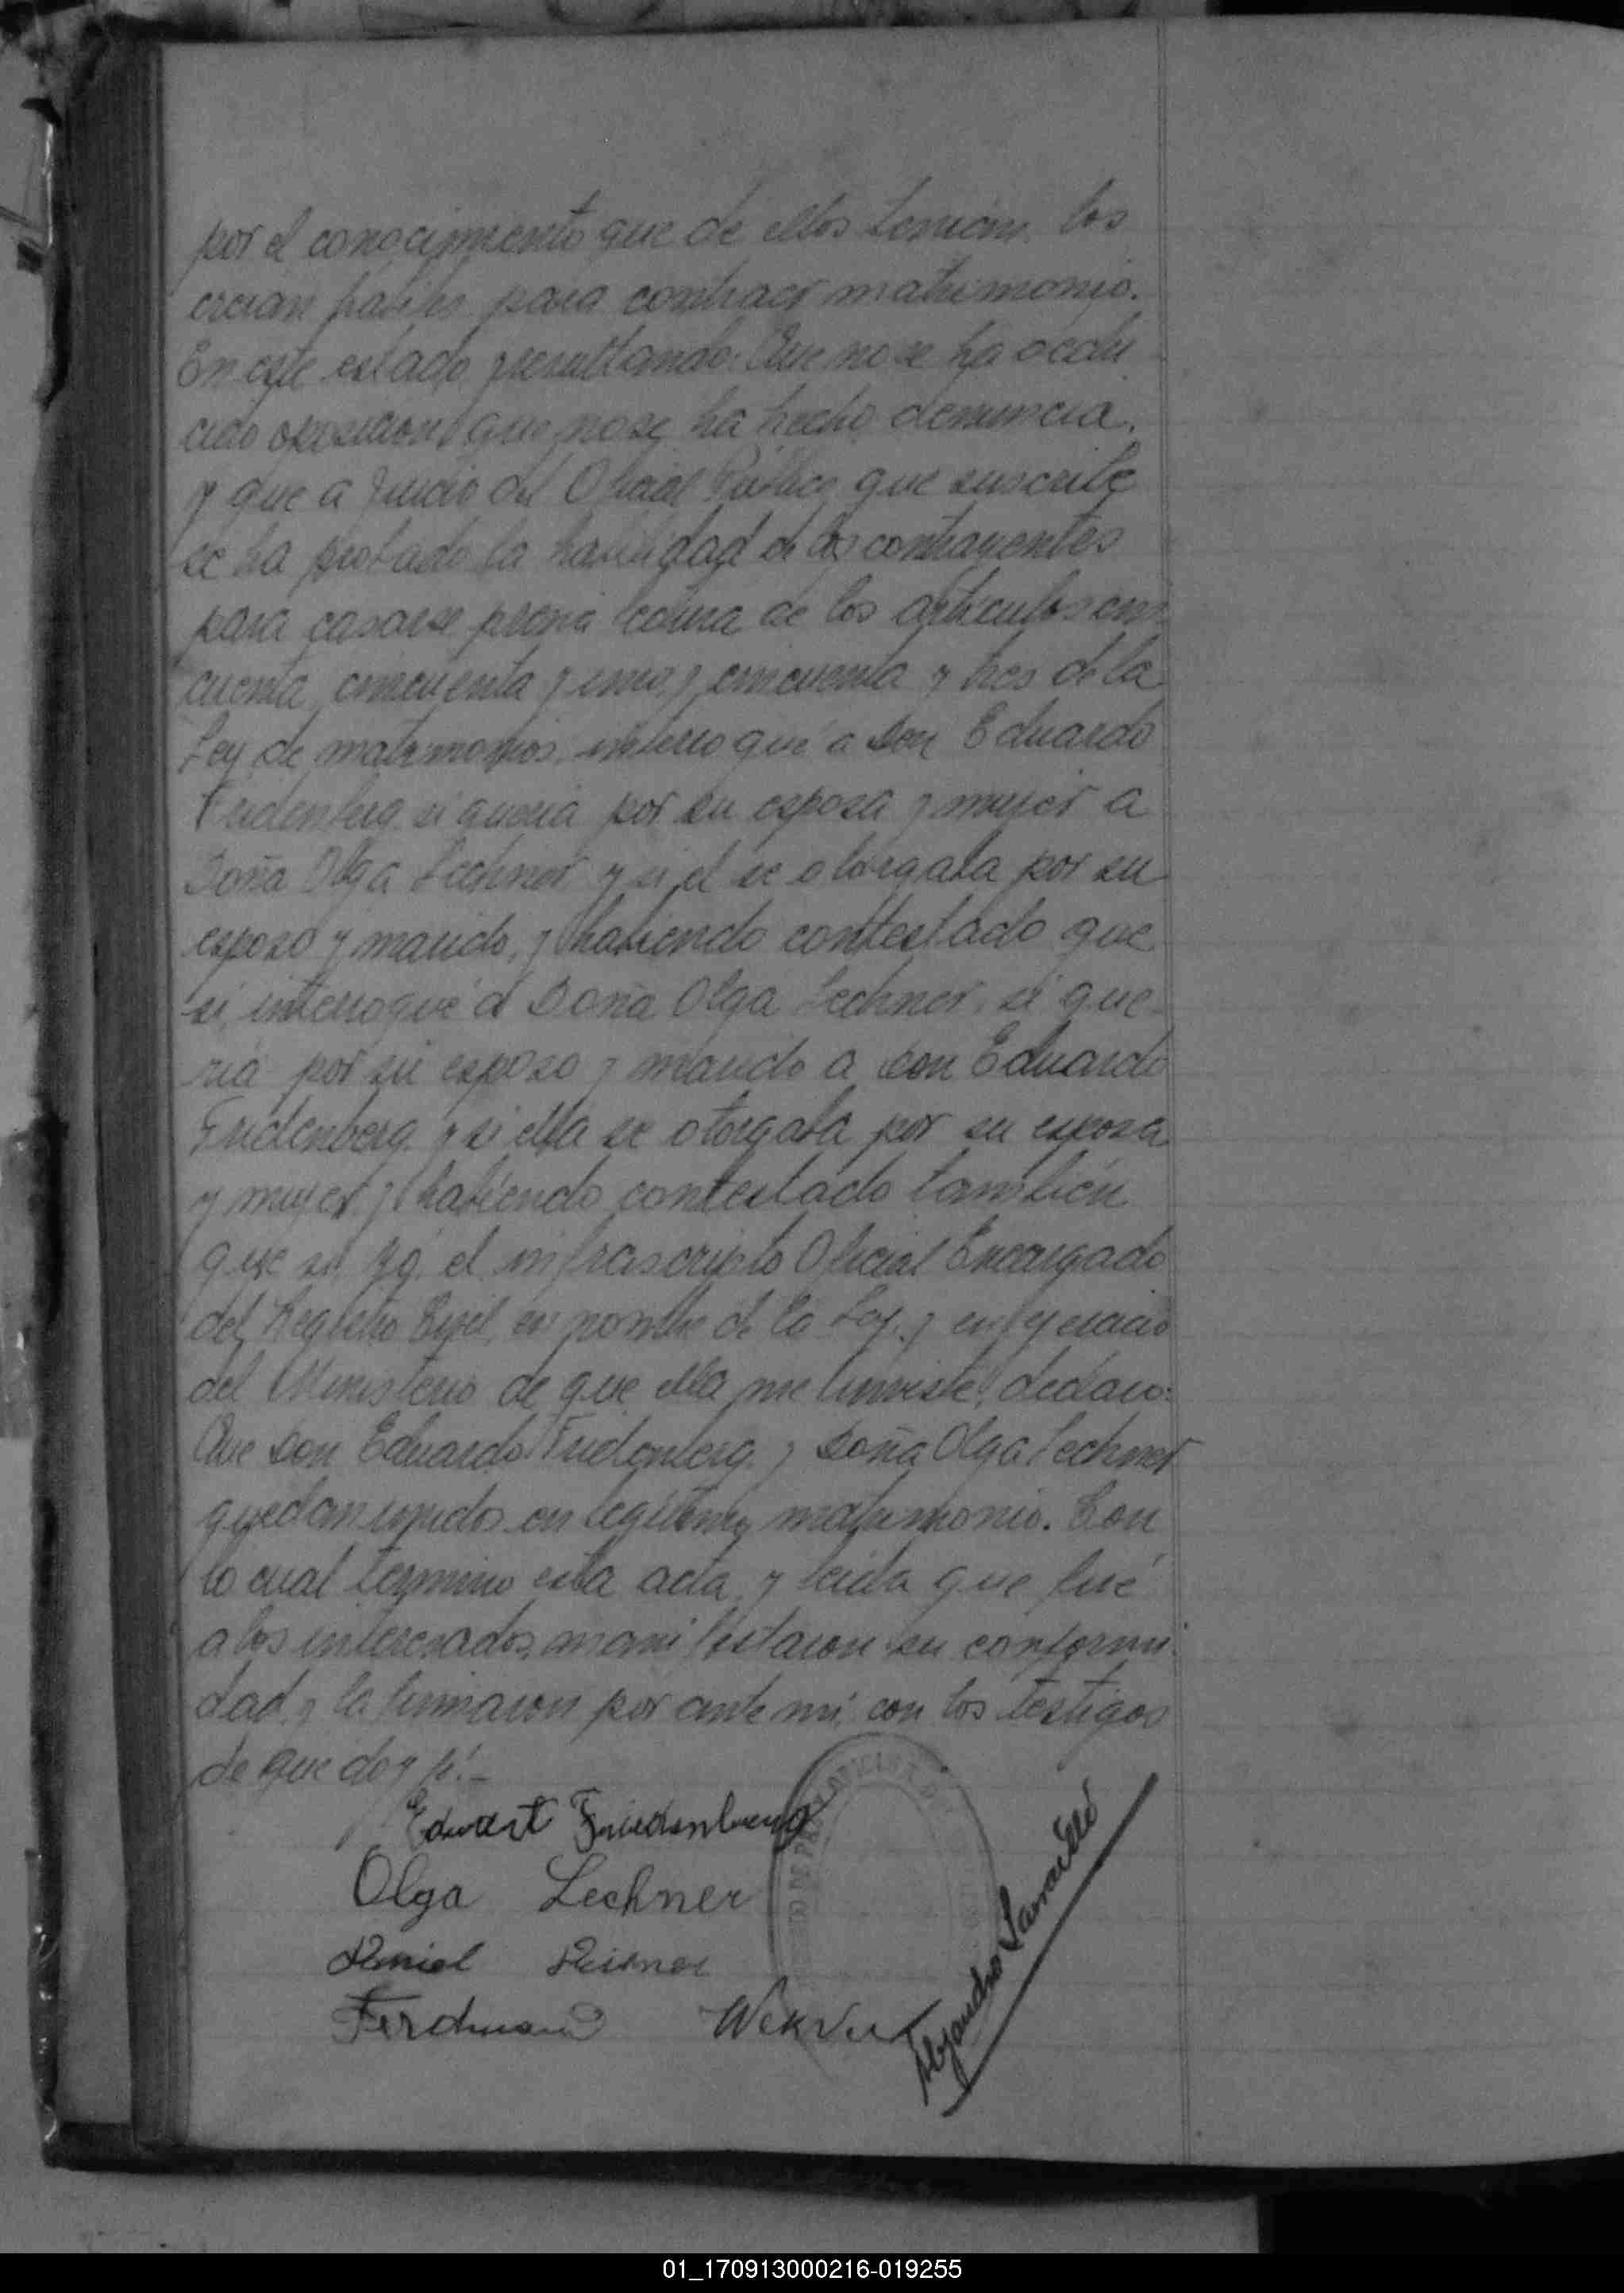 por el conocimiento que de ellos tenian los
creian habiles para contraer matrimonio.
En este estado y resultando: Que no se ha dedu
cido oposicion, que no se ha hecho denuncia,
y que a juicio del Oficial Público que suscribe
se ha probado la habilidad de los contrayentes
para casarse previa lectura de los artículos cin
cuenta, cincuenta y uno y cincuenta y tres de la
Ley de matrimonios, interrogué a Don Eduardo
Fridenberg si queria por su esposa y mujer a
Doña Olga Lechner y si el se otorgaba por su
esposo y marido, y habiendo contestado que
si, interrogué a Doña Olga Lechner, si que-
ria por su esposo y marido a Don Eduardo
Fridenberg y si ella se otorgaba por su esposa
y mujer y habiendo contestado también
que si, Yo, el infrascripto Oficial Encargado
del Registro Civil, en nombre de la Ley, y en ejercicio
del Ministerio de que ella me inviste, declaro:
Que Don Eduardo Fridenberg y Doña Olga Lechner
quedan unidos en legítimo matrimonio. Con
lo cual termino esta acta, y leida que fué
a los interesados, manifestaron su conformi
dad y la firmaron por ante mi, con los testigos
de que doy fé.-
Edward Friedenberg
Olga Lechner
Daniel
Ferdinand
Alejandro
01_170913000216-019255